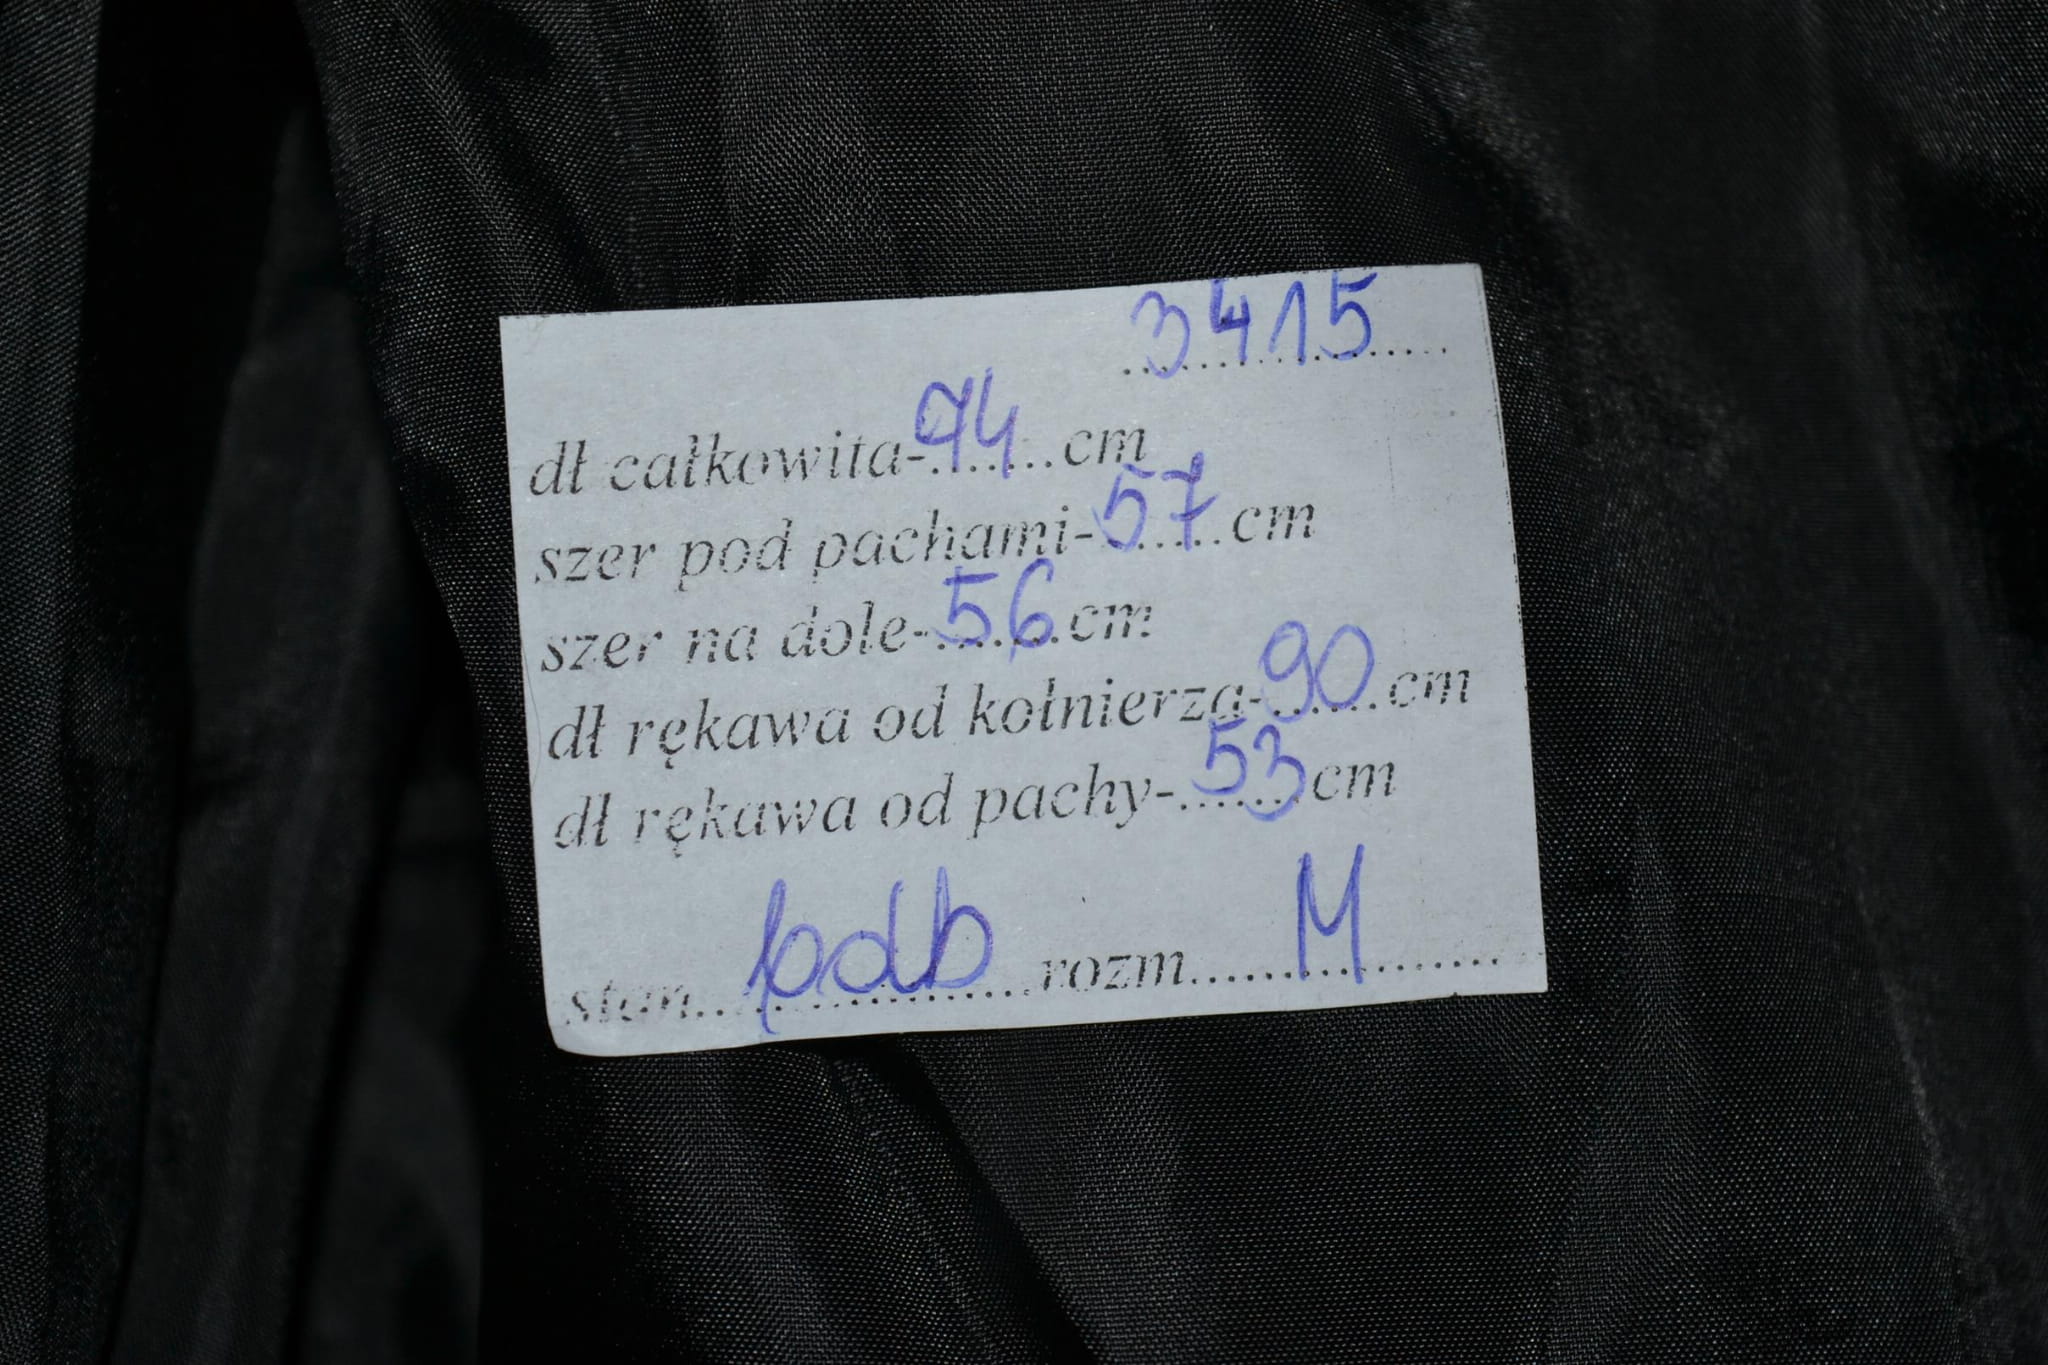 3415
dł całkowita-74.......cm
szer pod pachami-57......cm
szer na dole-56.......cm
dł rękawa od kołnierza-90......cm
dł rękawa od pachy-53......cm
stan..bdb..............rozm......M..........